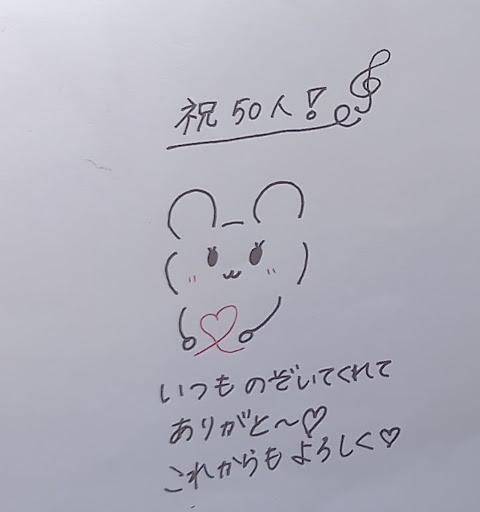 祝50人!
いつものぞいてくれて
ありがと〜♡
これからもよろしく♡